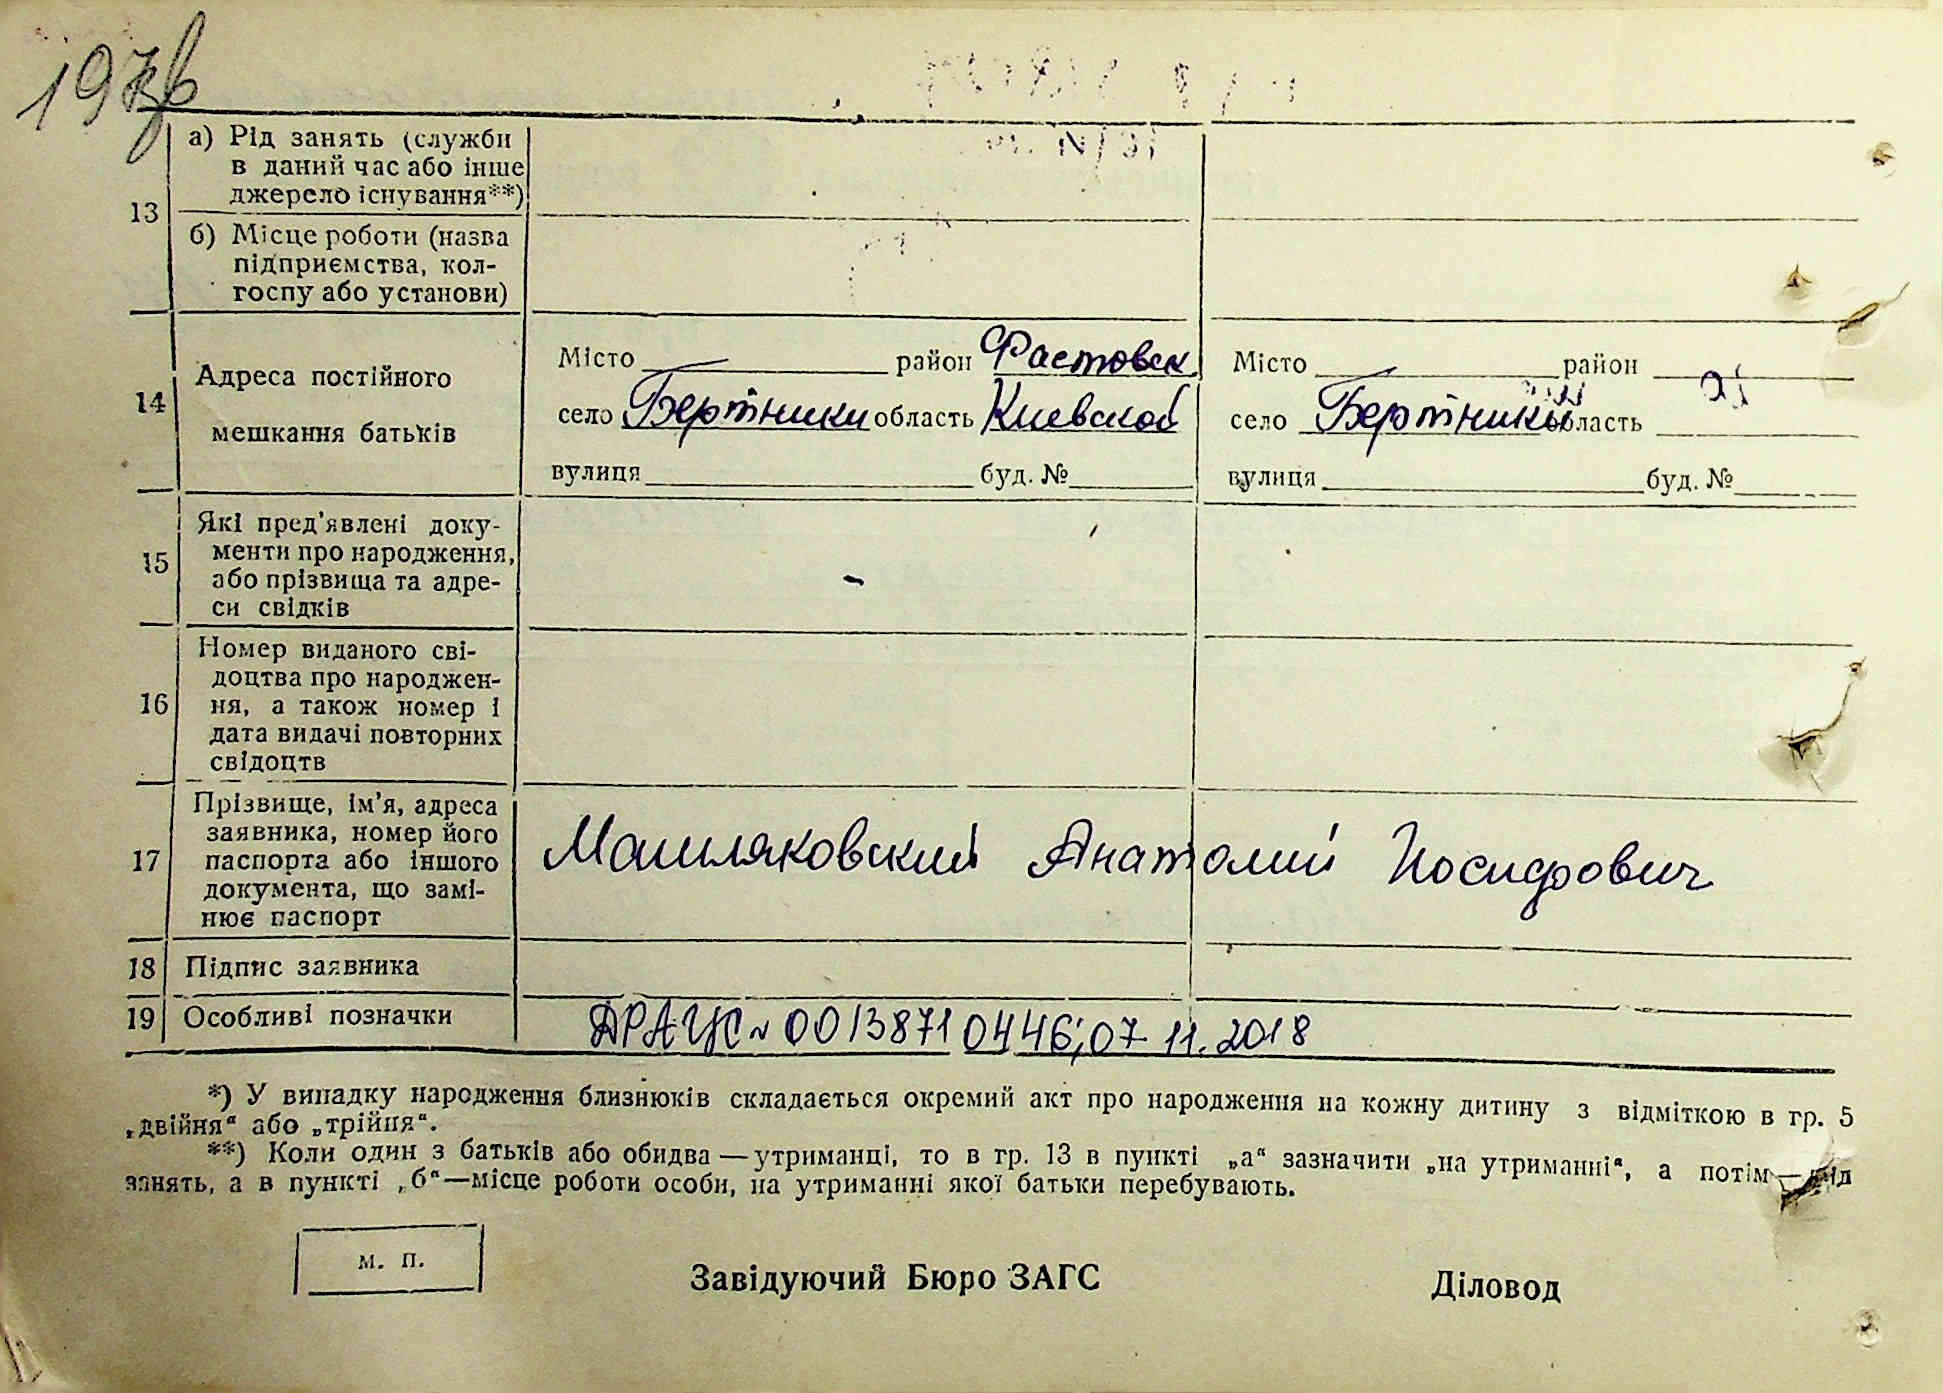 197 зв
13
а) Рід занять (служби
в даний час або інше
джерело існування**)
б) Місце роботи (назва
підприємства, кол-
госпу або установи)
14
Адреса постійного
мешкання батьків
Місто район Фастовск
село Бертники область Киевской
вулиця буд. №
Місто район
село Бертники область
вулиця буд. №
15
Які пред'явлені доку-
менти про народження,
або прізвища та адре-
си свідків
16
Номер виданого сві-
доцтва про народжен-
ня, а також номер і
дата видачі повторних
свідоцтв
17
Прізвище, ім'я, адреса
заявника, номер його
паспорта або іншого
документа, що замі-
нює паспорт
Машляковский Анатолий Иосифович
18 Підпис заявника
19 Особливі позначки
ДРАЦС № 00138710446; 07.11.2018
*) У випадку народження близнюків складається окремий акт про народження на кожну дитину з відміткою в гр. 5
„двійня“ або „трійня“.
**) Коли один з батьків або обидва — утриманці, то в гр. 13 в пункті „а“ зазначити „на утриманні“, а потім — рід
занять, а в пункті „б“—місце роботи особи, на утриманні якої батьки перебувають.
м. п.
Завідуючий Бюро ЗАГС
Діловод